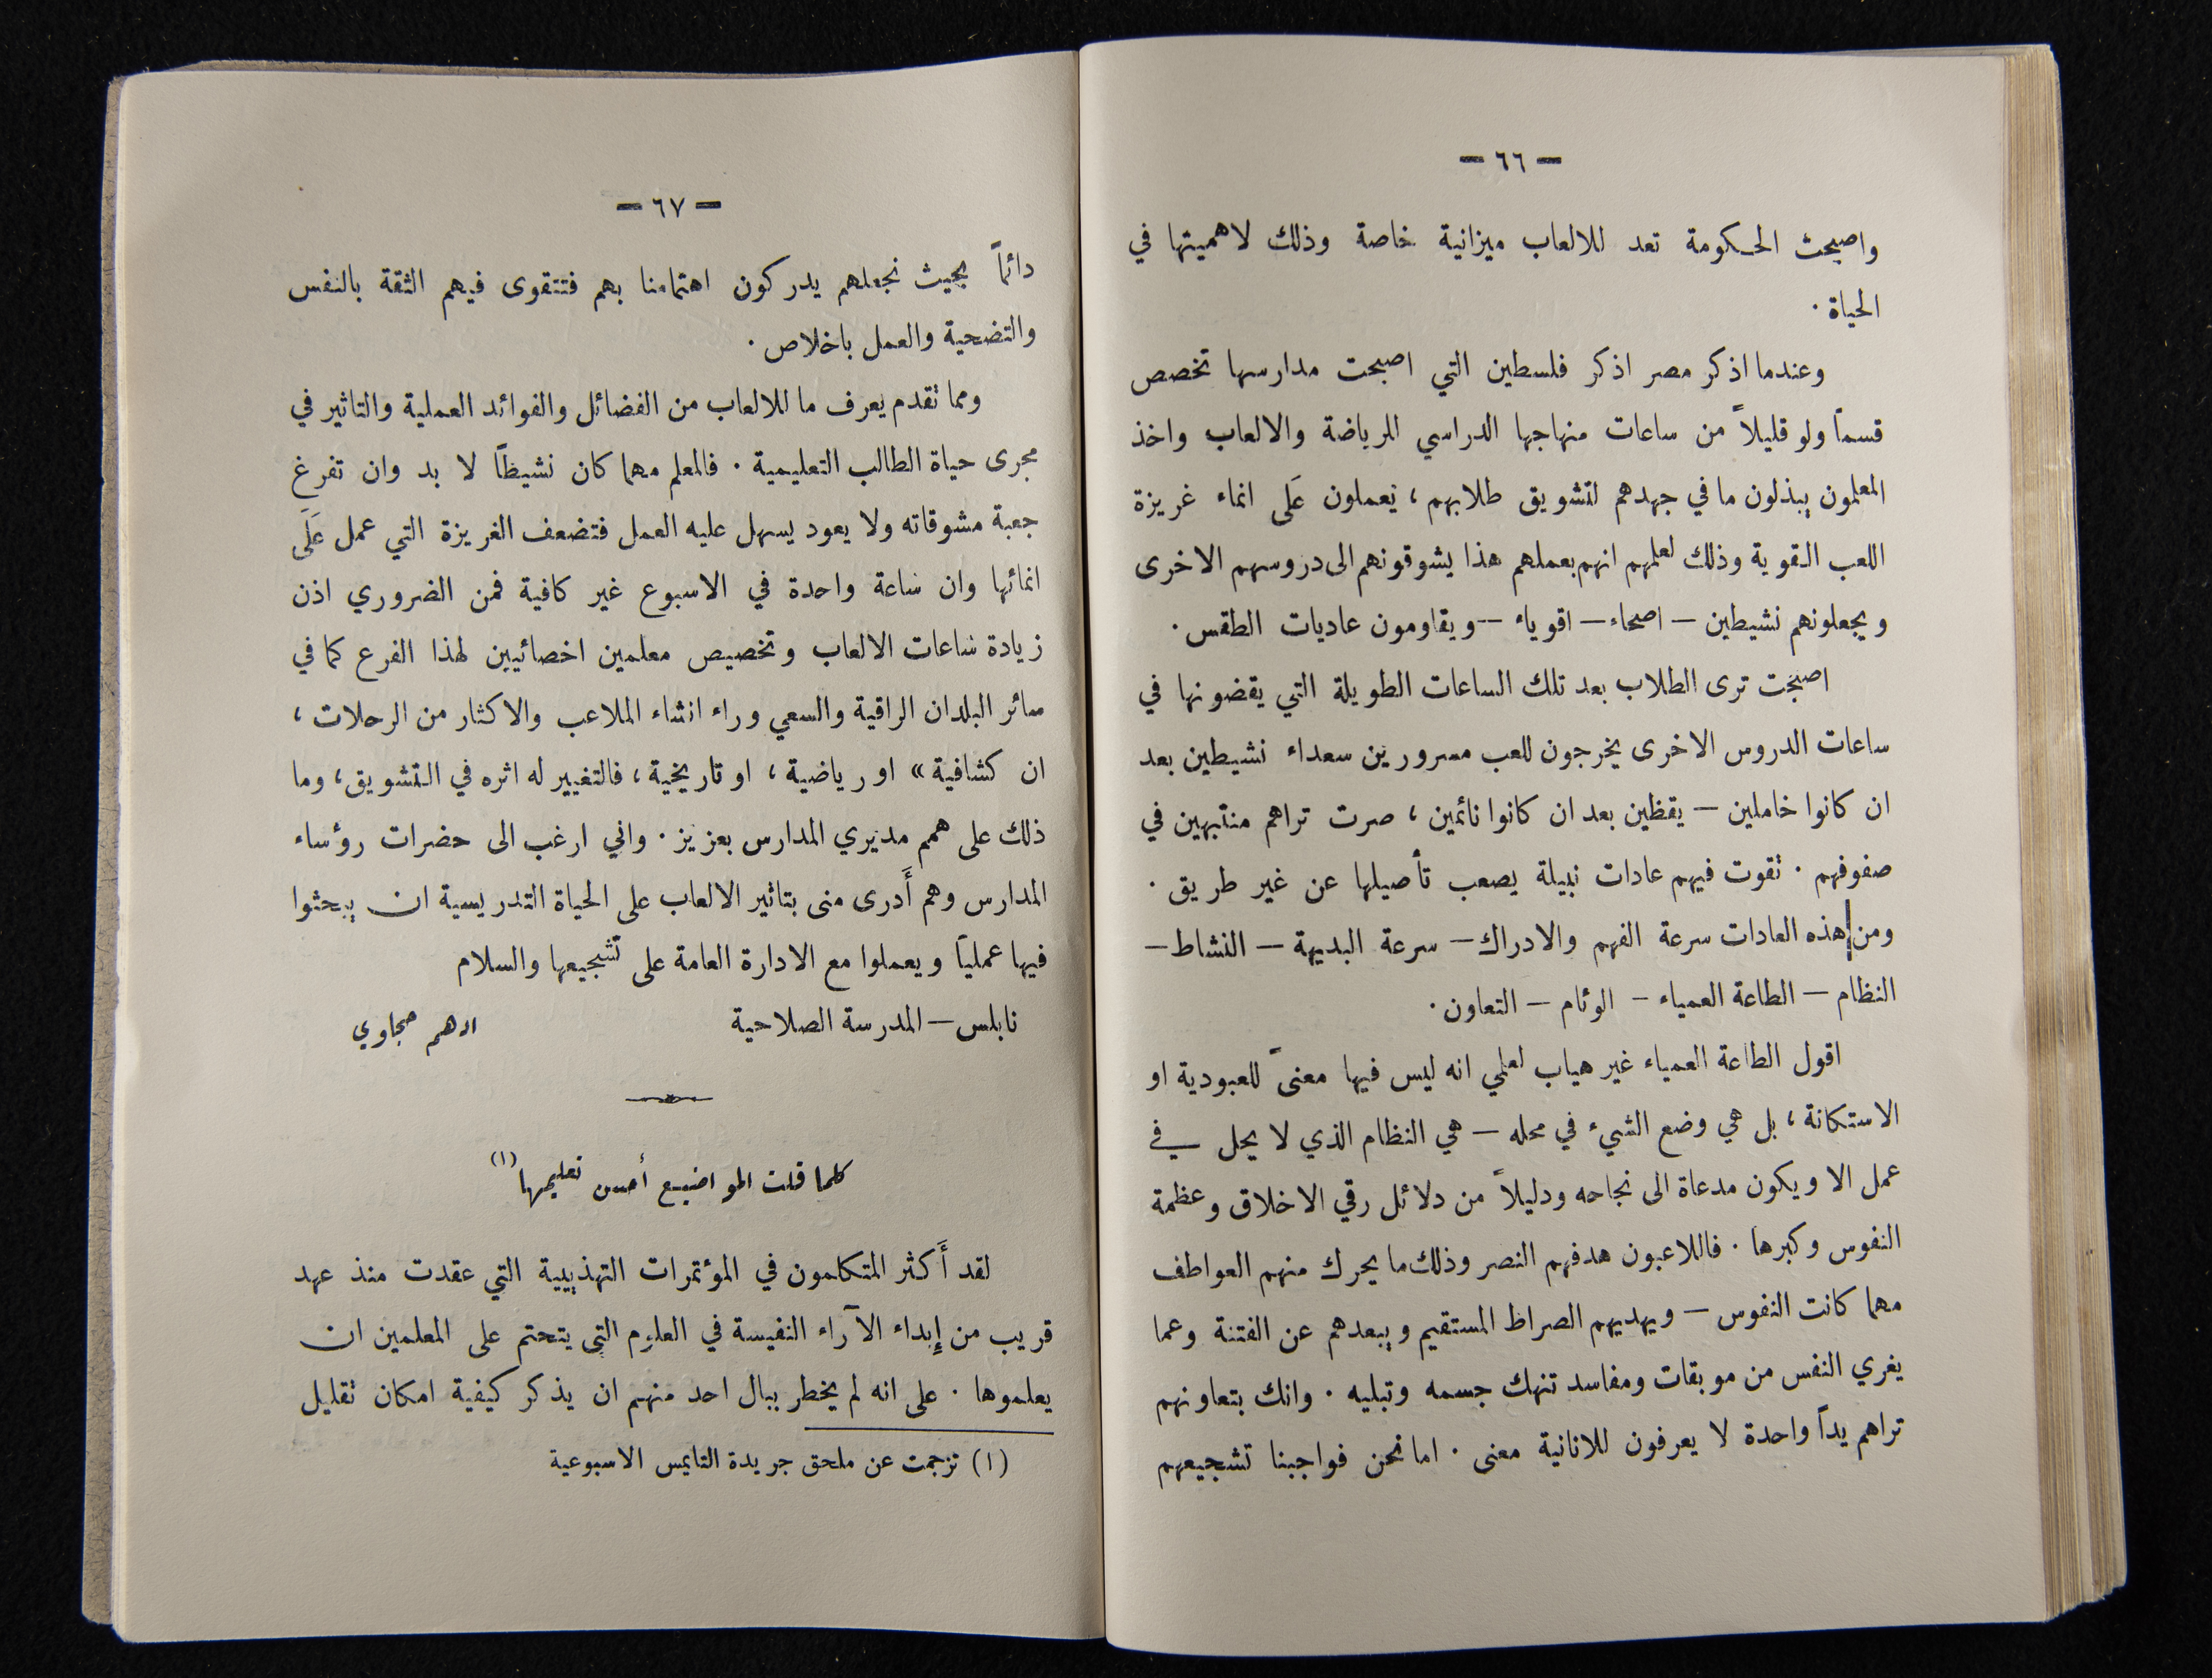 — ٦٦ —
واصبحت الحكومة تعد للالعاب ميزانية خاصة وذلك لاهميتها في
الحياة ·
وعندما اذكر مصر اذكر فلسطين التي اصبحت مدارسها تخصص
قسماً ولو قليلاً من ساعات منهاجها الدراسي للرياضة والالعاب واخذ
المعلمون يبذلون ما في جهدهم لتشويق طلابهم ، يعملون عَلى انماء غريزة
اللعب القوية وذلك لعلمهم انهم بعملهم هذا يشوقونهم الى دروسهم الاخرى
ويجعلونهم نشيطين — اصحاء — اقوياء — ويقاومون عاديات الطقس ·
اصبحت ترى الطلاب بعد تلك الساعات الطويلة التي يقضونها في
ساعات الدروس الاخرى يخرجون للعب مسرورين سعداء نشيطين بعد
ان كانوا خاملين — يقظين بعد ان كانوا نائمين ، صرت تراهم منتبهين في
صفوفهم · تقوت فيهم عادات نبيلة يصعب تأصيلها عن غير طريق ·
ومن هذه العادات سرعة الفهم والادراك — سرعة البديهة — النشاط —
النظام — الطاعة العمياء — الوئام — التعاون ·
اقول الطاعة العمياء غير هياب لعلمي انه ليس فيها معنىً للعبودية او
الاستكانة ، بل هي وضع الشيء في محله — هي النظام الذي لا يحل في
عمل الا ويكون مدعاة الى نجاحه ودليلاً من دلائل رقي الاخلاق وعظمة
النفوس وكبرها · فاللاعبون هدفهم النصر وذلك ما يحرك منهم العواطف
مهما كانت النفوس — ويهديهم الصراط المستقيم ويبعدهم عن الفتنة وعما
يغري النفس من موبقات ومفاسد تنهك جسمه وتبليه · وانك بتعاونهم
تراهم يداً واحدة لا يعرفون للانانية معنى · اما نحن فواجبنا تشجيعهم
— ٦٧ —
دائماً بحيث نجعلهم يدركون اهتمامنا بهم فتتقوى فيهم الثقة بالنفس
والتضحية والعمل باخلاص ·
ومما تقدم يعرف ما للالعاب من الفضائل والفوائد العملية والتاثير في
مجرى حياة الطالب التعليمية · فالمعلم مهما كان نشيطاً لا بد وان تفرغ
جعبة مشوقاته ولا يعود يسهل عليه العمل فتضعف الغريزة التي عمل عَلَى
انمائها وان ساعة واحدة في الاسبوع غير كافية فمن الضروري اذن
زيادة ساعات الالعاب وتخصيص معلمين اخصائيين لهذا الفرع كما في
سائر البلدان الراقية والسعي وراء انشاء الملاعب والاكثار من الرحلات ،
ان كشافية» او رياضية ، او تاريخية ، فالتغيير له اثره في التشويق ، وما
ذلك على همم مديري المدارس بعزيز · واني ارغب الى حضرات رؤساء
المدارس وهم أَدرى منى بتاثير الالعاب على الحياة التدريسية ان يبحثوا
فيها عملياً ويعملوا مع الادارة العامة على تشجيعها والسلام
نابلس — المدرسة الصلاحية ادهم حجاوي
كلما قلت المواضيع أحسن تعليمها (١)
لقد أَكثر المتكلمون في المؤتمرات التهذيبية التي عقدت منذ عهد
قريب من إِبداء الآراء النفيسة في العلوم التي يتحتم على المعلمين ان
يعلموها · على انه لم يخطر ببال احد منهم ان يذكر كيفية امكان تقليل
(١) ترجمت عن ملحق جريدة التايمس الاسبوعية